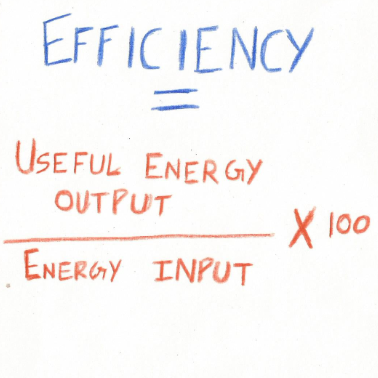 EFFICIENCY
=
USEFUL ENERGY
OUTPUT
X 100
ENERGY INPUT